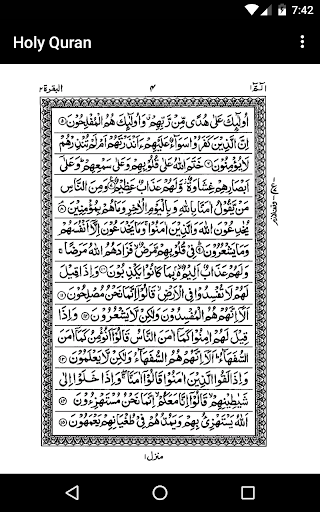 7:42
Holy Quran
الٓمّٓ ١
٤
البقرة ٢
اُولٰٓئِكَ عَلٰى هُدًى مِّنْ رَّبِّهِمْ وَاُولٰٓئِكَ هُمُ الْمُفْلِحُوْنَ ۝٥
اِنَّ الَّذِيْنَ كَفَرُوْا سَوَآءٌ عَلَيْهِمْ ءَاَنْذَرْتَهُمْ اَمْ لَمْ تُنْذِرْهُمْ
لَا يُؤْمِنُوْنَ ۝٦ خَتَمَ اللّٰهُ عَلٰى قُلُوْبِهِمْ وَعَلٰى سَمْعِهِمْ وَعَلٰٓى
اَبْصَارِهِمْ غِشَاوَةٌ وَّلَهُمْ عَذَابٌ عَظِيْمٌ ۝٧ وَمِنَ النَّاسِ
مَنْ يَّقُوْلُ اٰمَنَّا بِاللّٰهِ وَبِالْيَوْمِ الْاٰخِرِ وَمَا هُمْ بِمُؤْمِنِيْنَ ۝٨
يُخٰدِعُوْنَ اللّٰهَ وَالَّذِيْنَ اٰمَنُوْا وَمَا يَخْدَعُوْنَ اِلَّآ اَنْفُسَهُمْ
وَمَا يَشْعُرُوْنَ ۝٩ فِيْ قُلُوْبِهِمْ مَّرَضٌ فَزَادَهُمُ اللّٰهُ مَرَضًا
وَلَهُمْ عَذَابٌ اَلِيْمٌ بِمَا كَانُوْا يَكْذِبُوْنَ ۝١٠ وَاِذَا قِيْلَ
لَهُمْ لَا تُفْسِدُوْا فِي الْاَرْضِ قَالُوْٓا اِنَّمَا نَحْنُ مُصْلِحُوْنَ ۝١١
اَلَآ اِنَّهُمْ هُمُ الْمُفْسِدُوْنَ وَلٰكِنْ لَّا يَشْعُرُوْنَ ۝١٢ وَاِذَا
قِيْلَ لَهُمْ اٰمِنُوْا كَمَآ اٰمَنَ النَّاسُ قَالُوْٓا اَنُؤْمِنُ كَمَآ اٰمَنَ
السُّفَهَآءُ اَلَآ اِنَّهُمْ هُمُ السُّفَهَآءُ وَلٰكِنْ لَّا يَعْلَمُوْنَ ۝١٣
وَاِذَا لَقُوا الَّذِيْنَ اٰمَنُوْا قَالُوْٓا اٰمَنَّا وَاِذَا خَلَوْا اِلٰى
شَيٰطِيْنِهِمْ قَالُوْٓا اِنَّا مَعَكُمْ اِنَّمَا نَحْنُ مُسْتَهْزِءُوْنَ ۝١٤
اَللّٰهُ يَسْتَهْزِئُ بِهِمْ وَيَمُدُّهُمْ فِيْ طُغْيَانِهِمْ يَعْمَهُوْنَ ۝١٥
منزل ١